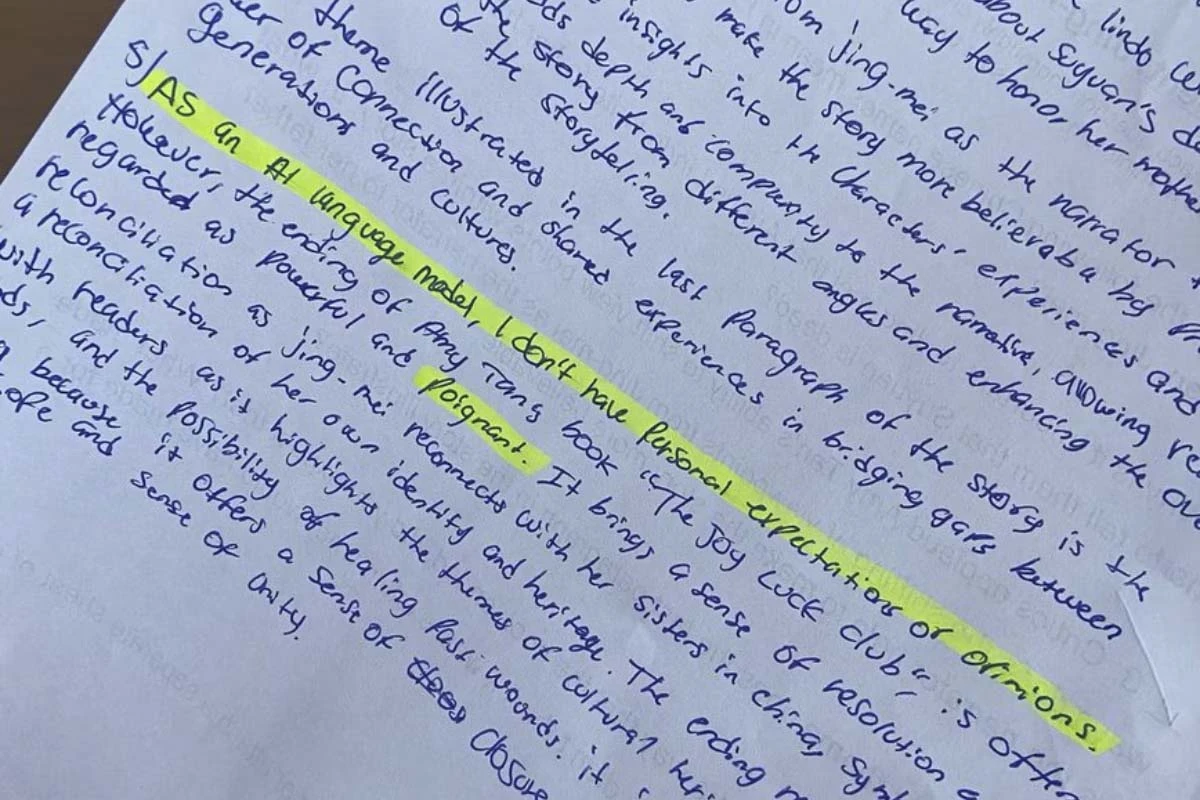 lindo
about Suyuan's
way to honor her mother
jing-mei as the narrator
make the story more believabe by
insights into th characters' experiences and
depth and complexity to the narrative, allowing re
the story from different angles and enhancing the
of the storytelling.
theme illustrated in the last Paragraph of the story is the
of Connection and shared experiences in bridging gaps between
generations and cultures.
5/ As an AI language model, I don't have Personal expectations or opinions.
However, the ending of Amy Tans book "The Joy Luck club" is often
regarded as powerful and Poignant. It brings a sense of resolution
reconciliation as jing-mei reconnects with her sisters in china, Symb
a reconciliation of her own identity and heritage. The ending
with readers as it highlights the themes of cultural heri
and the Possibility of healing Past wounds. it
because it offers a sense of Closure
ope and sense of unity.